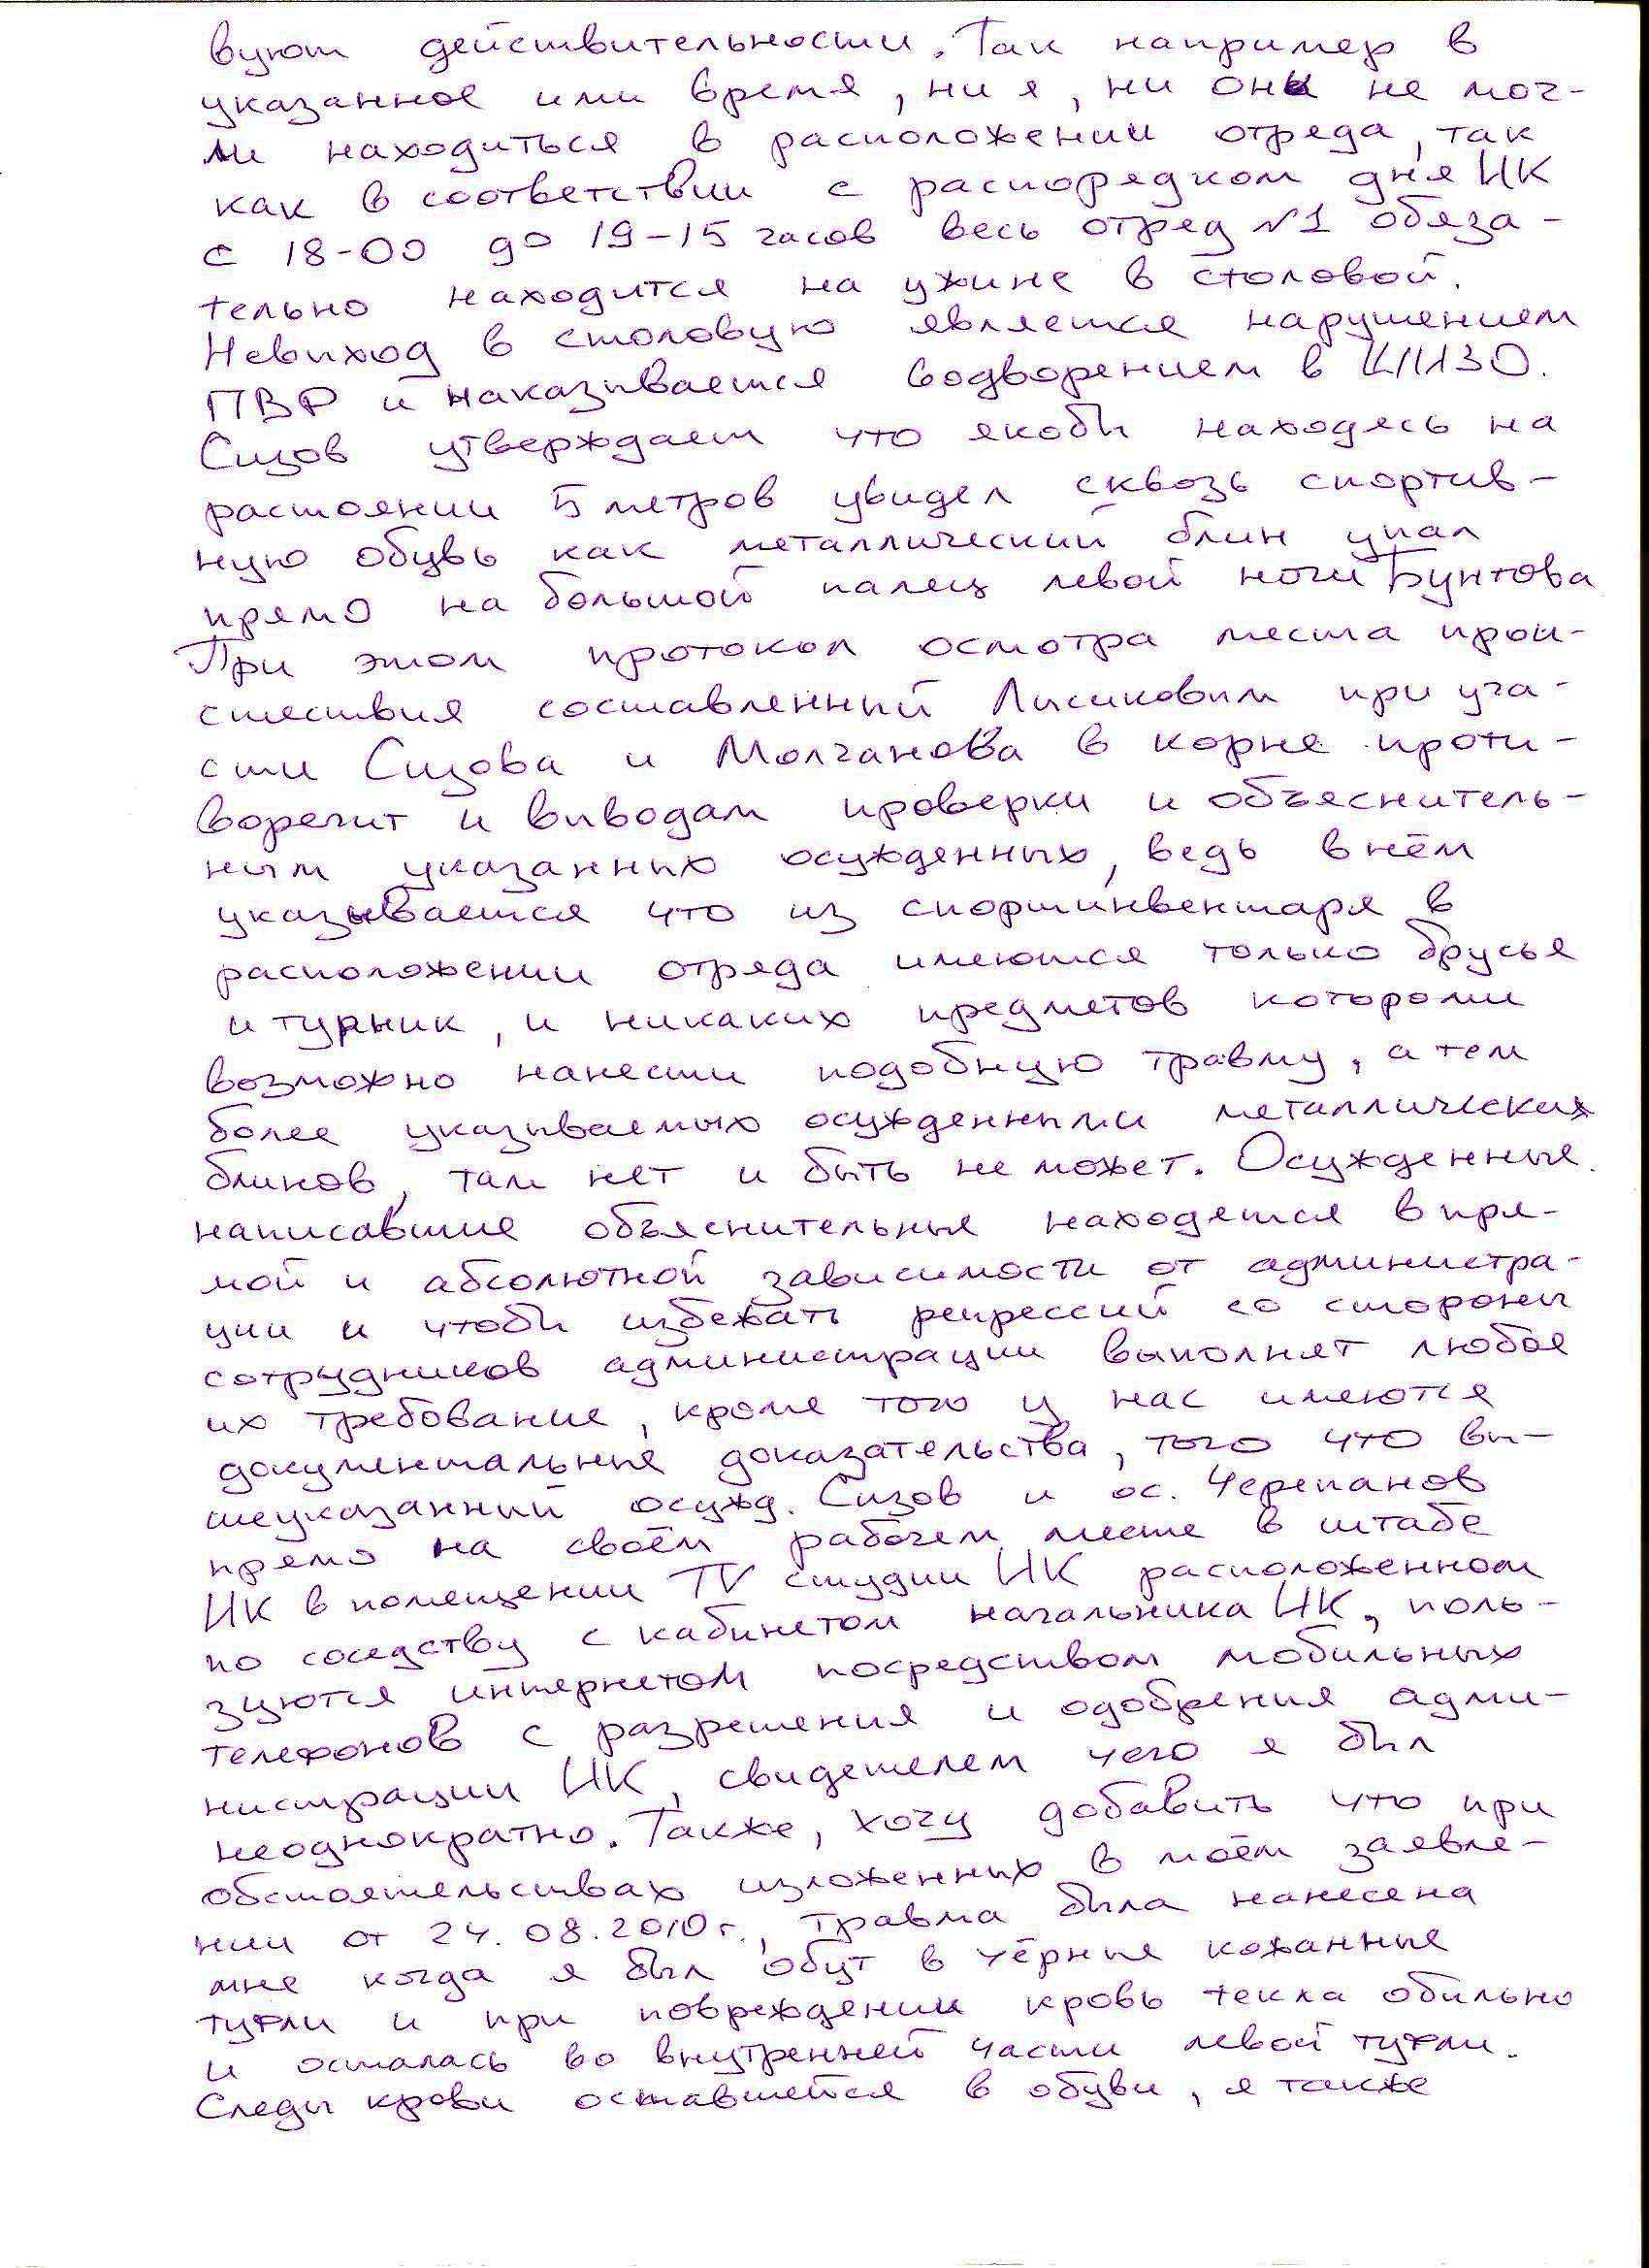 вуют действительности. Так например в
указанное ими время, ни я, ни они не мог-
ли находиться в расположении отряда, так
как в соответствии с распорядком дня ИК
с 18-00 до 19-15 часов весь отряд №1 обяза-
тельно находится на ужине в столовой.
Невыход в столовую является нарушением
ПВР и наказывается водворением в ШИЗО.
Сизов утверждает что якобы находясь на
растоянии 5 метров увидел сквозь спортив-
ную обувь как металлический блин упал
прямо на большой палец левой ноги Бунтова
При этом протокол осмотра места прои-
сшествия составленный Лисиковым при уча-
сти Сизова и Молчанова в корне проти-
воречит и выводам проверки и объяснитель-
ным указанных осужденных, ведь в нём
указывается что из спортинвентаря в
расположении отряда имеются только брусья
и турник, и никаких предметов которыми
возможно нанести подобную травму, а тем
более указываемых осужденными металлических
блинов, там нет и быть не может. Осужденные
написавшие объяснительные находятся в пря-
мой и абсолютной зависимости от администра-
ции и чтобы избежать репрессий со стороны
сотрудников администрации выполнят любое
их требование, кроме того у нас имеются
документальные доказательства, того что вы-
шеуказанный осужд. Сизов и ос. Черепанов
прямо на своём рабочем месте в штабе
ИК в помещении TV студии ИК расположенном
по соседству с кабинетом начальника ИК, поль-
зуются интернетом посредством мобильных
телефонов с разрешения и одобрения адми-
нистрации ИК, свидетелем чего я был
неоднократно. Также, хочу добавить что при
обстоятельствах изложенных в моём заявле-
нии от 24.08.2010г., травма была нанесена
мне когда я был обут в чёрные кожанные
туфли и при повреждении кровь текла обильно
и осталась во внутренней части левой туфли.
Следы крови оставшейся в обуви, я также